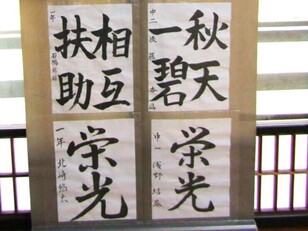 秋天
一碧
中二
相互
扶助
一年
栄光
中一 浅野 結
栄光
一年 北崎 悠太